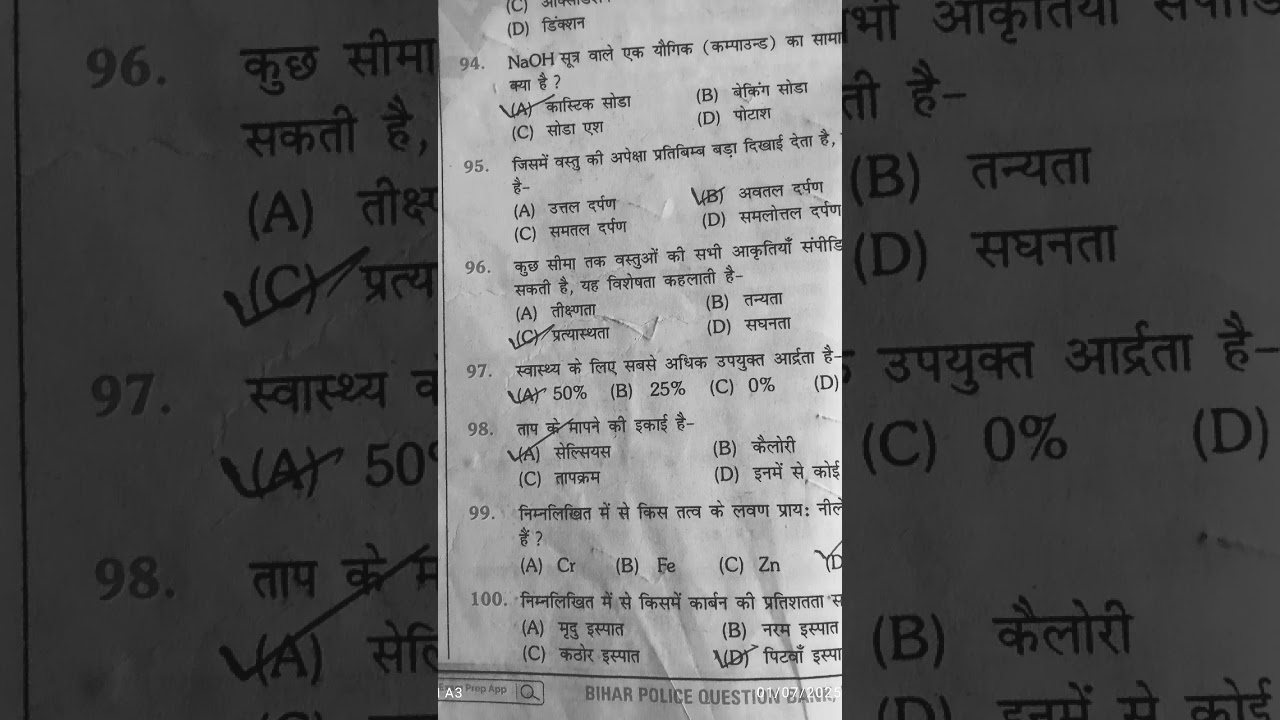 (D) डिंक्शन
94. NaOH सूत्र वाले एक यौगिक (कम्पाउन्ड) का
क्या है ?
(A) कास्टिक सोडा (B) बेकिंग सोडा
(C) सोडा एश (D) पोटाश
95. जिसमें वस्तु की अपेक्षा प्रतिबिम्ब बड़ा दिखाई देता है,
है-
(A) उत्तल दर्पण (B) अवतल दर्पण
(C) समतल दर्पण (D) समलोत्तल दर्पण
96. कुछ सीमा तक वस्तुओं की सभी आकृतियाँ
सकती है, यह विशेषता कहलाती है-
(A) तीक्ष्णता (B) तन्यता
(C) प्रत्यास्थता (D) सघनता
97. स्वास्थ्य के लिए सबसे अधिक उपयुक्त आर्द्रता है-
(A) 50% (B) 25% (C) 0% (D)
98. ताप के मापने की इकाई है-
(A) सेल्सियस (B) कैलोरी
(C) तापक्रम (D) इनमें से कोई
99. निम्नलिखित में से किस तत्व के लवण प्राय:
हैं ?
(A) Cr (B) Fe (C) Zn (D
100. निम्नलिखित में से किसमें कार्बन की प्रतिशतता
(A) मृदु इस्पात (B) नरम इस्पात
(C) कठोर इस्पात (D) पिटवाँ
A3 Prep App BIHAR POLICE QUESTION BANK, 01/07/2025